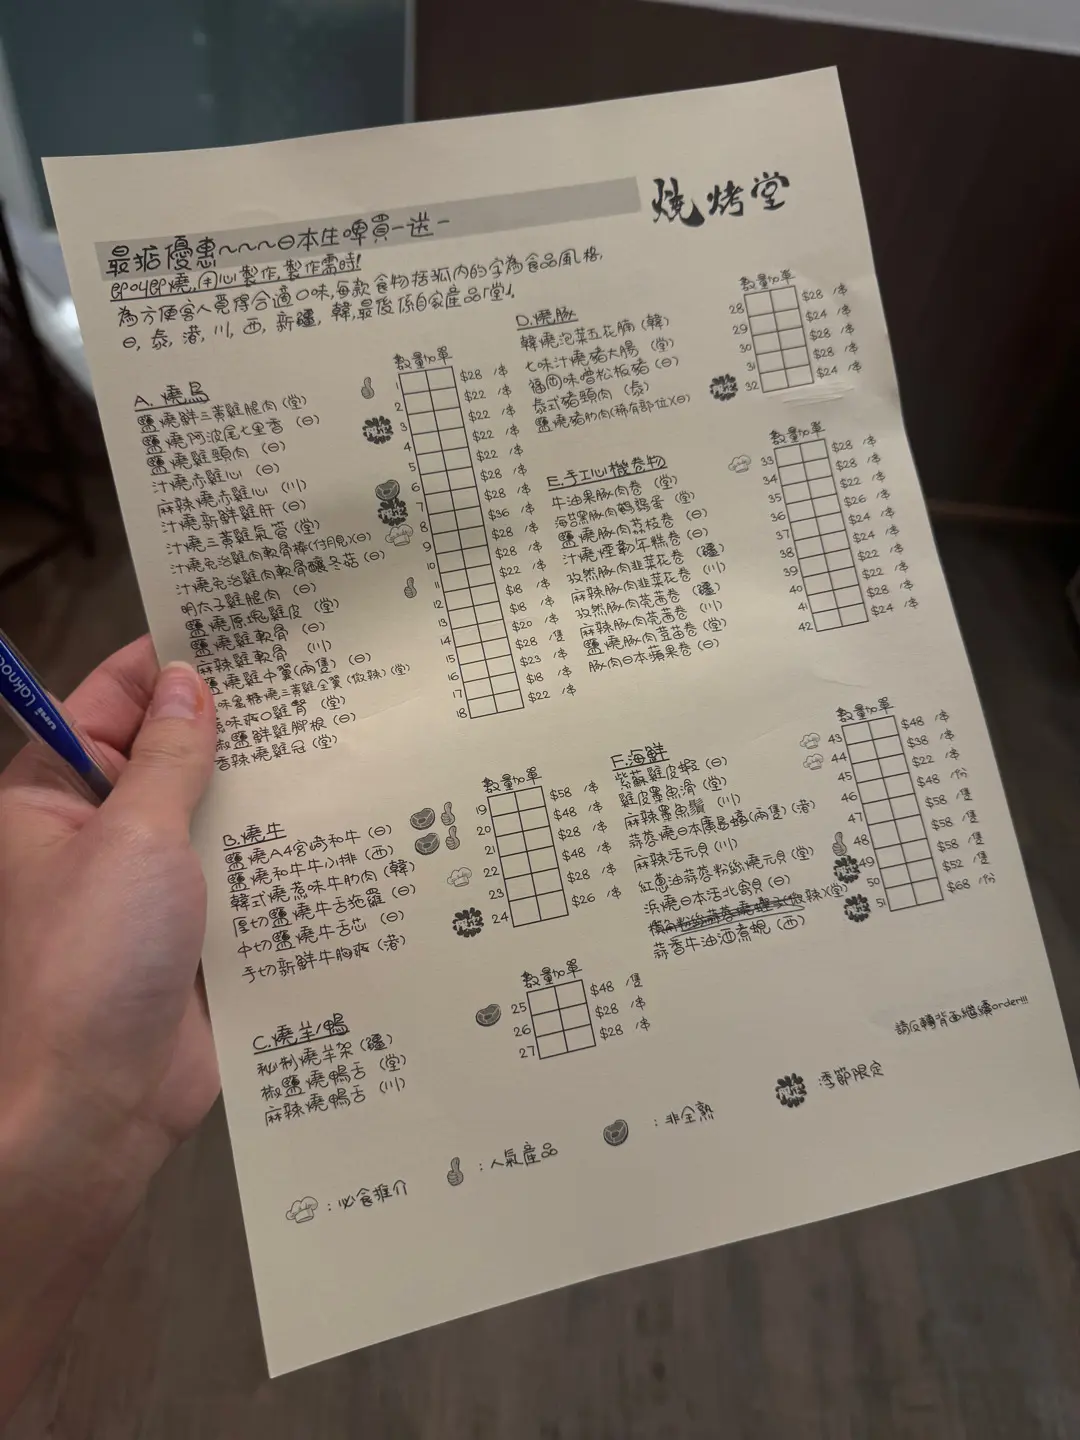 燒烤堂
最掂優惠~~~日本生啤買一送一
即叫即燒,用心製作,製作需時!
為方便客人覓得合適口味,每款食物括弧內的字為食品風格,
日,泰,港,川,西,新疆,韓,最後係自家產品「堂」。
A. 燒鳥
鹽燒鮮三黃雞腿肉(堂)
鹽燒阿波尾七里香 (日)
鹽燒雞頸肉 (日)
汁燒赤雞心 (日)
麻辣燒赤雞心 (川)
汁燒新鮮雞肝 (日)
汁燒三黃雞氣管 (堂)
汁燒免治雞肉軟骨棒(付月見)(日)
汁燒免治雞肉軟骨釀冬菇 (日)
明太子雞腿肉 (日)
鹽燒原塊雞皮 (堂)
鹽燒雞軟骨 (日)
麻辣雞軟骨 (川)
鹽燒雞中翼(兩隻) (日)
味蜜糖燒三黃雞全翼(微辣)(堂)
味爽口雞腎 (堂)
椒鹽鮮雞腳根 (日)
香辣燒雞冠 (堂)
數量 加單
1 $28 /串
2 $22 /串
3 $22 /串
4 $22 /串
5 $22 /串
6 $28 /串
7 $28 /串
8 $36 /串
9 $28 /串
10 $28 /串
11 $22 /串
12 $18 /串
13 $18 /串
14 $20 /串
15 $28 /隻
16 $23 /串
17 $18 /串
18 $22 /串
B. 燒牛
鹽燒A4宮崎和牛 (日)
鹽燒和牛牛小排 (西)
韓式燒惹味牛肋肉 (韓)
厚切鹽燒牛舌拖羅 (日)
中切鹽燒牛舌芯 (日)
手切新鮮牛胸爽 (港)
數量 加單
19 $58 /串
20 $48 /串
21 $28 /串
22 $48 /串
23 $28 /串
24 $26 /串
C. 燒羊/鴨
秘制燒羊架 (疆)
椒鹽燒鴨舌 (堂)
麻辣燒鴨舌 (川)
數量 加單
25 $48 /隻
26 $28 /串
27 $28 /串
D. 燒豚
韓燒泡菜五花腩 (韓)
七味汁燒豬大腸 (堂)
福岡味噌松板豬 (日)
泰式豬頸肉 (泰)
鹽燒豬肋肉(稀有部位)(日)
數量 加單
28 $28 /串
29 $24 /串
30 $28 /串
31 $28 /串
32 $24 /串
E. 手工心機卷物
牛油果豚肉卷 (堂)
海苔黑豚肉鵪鶉蛋 (堂)
鹽燒豚肉荔枝卷 (日)
汁燒煙韌年糕卷 (日)
孜然豚肉韭菜花卷 (疆)
麻辣豚肉韭菜花卷 (川)
孜然豚肉芫茜卷 (疆)
麻辣豚肉芫茜卷 (川)
鹽燒豚肉荳苗卷 (堂)
豚肉日本蘋果卷 (日)
數量 加單
33 $28 /串
34 $28 /串
35 $22 /串
36 $26 /串
37 $24 /串
38 $24 /串
39 $22 /串
40 $22 /串
41 $28 /串
42 $24 /串
F. 海鮮
紫蘇雞皮蝦 (日)
雞皮墨魚滑 (堂)
麻辣墨魚鬚 (川)
蒜蓉燒日本廣島蠔(兩隻) (港)
麻辣活元貝 (川)
紅蔥油蒜蓉粉絲燒元貝 (堂)
浜燒日本活北寄貝 (日)
(微辣)(堂)
蒜香牛油酒煮蜆 (西)
數量 加單
43 $48 /串
44 $38 /串
45 $22 /串
46 $48 /份
47 $58 /隻
48 $58 /隻
49 $58 /隻
50 $52 /隻
51 $68 /份
請反轉背面繼續order!!!
:必食推介
:人氣產品
:非全熟
季節限定
uni Laknock